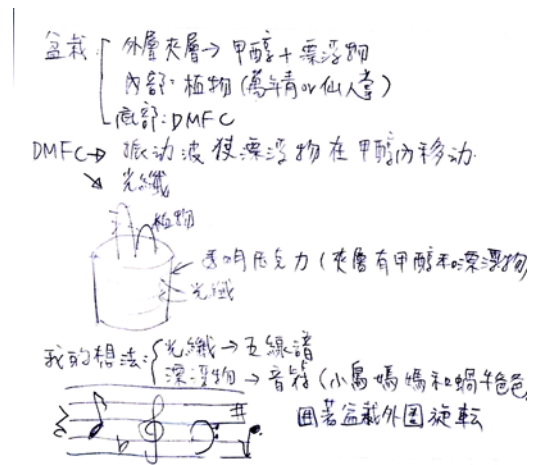 盆栽 外層夾層→甲醇+漂浮物
內部:植物(萬年青or仙人掌)
底部:DMFC
DMFC→振动波使漂浮物在甲醇內移动
↘光纖
植物
透明压克力(夾層有甲醇和漂浮物
光纖
我的想法:光纖→五線譜
漂浮物→音符(小鳥媽媽和蝸牛爸爸
圍著盆栽外圍旋転